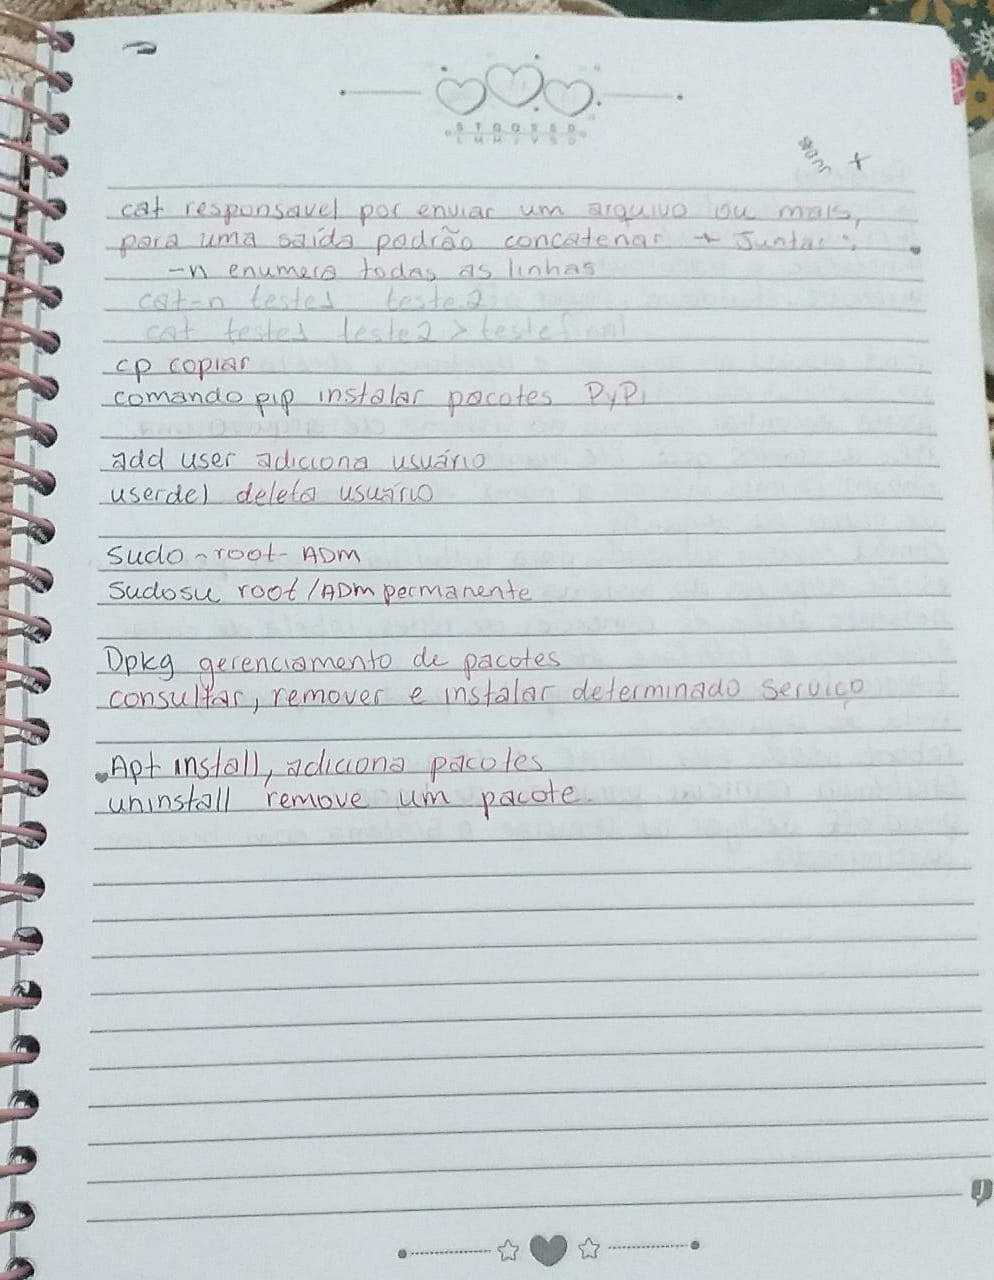 cat responsavel por enviar um arquivo ou mais,
para uma saída padrão concatenar + Juntar;
-n enumera todas as linhas
cat-n teste1 teste2
cat teste1 teste2 > testefinal
cp copiar
comando pip instalar pacotes PyPi
add user adiciona usuário
userdel deleta usuário
Sudo - root - ADM
Sudosu root/ADM permanente
Dpkg gerenciamento de pacotes
consultar, remover e instalar determinado serviço
.Apt install, adiciona pacotes
uninstall remove um pacote.